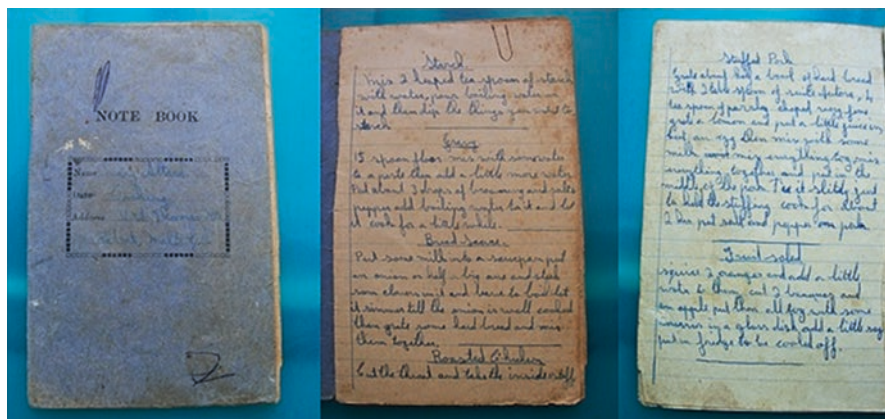 NOTE BOOK
Name
Date
Address
Starch
Mix 2 heaped tea spoon of starch
with water, pour boiling water on
it and then dip the things you want to
starch
Gravy
15 spoon flour mix with some water
to a paste then add a little more water
Put about 3 drops of browning and salt
pepper add boiling water to it and let
it cook for a little while.
Bread Sauce.
Put some milk into a saucepan put
an onion or half a big one and
som cloves in it and leave to boil let
it simmer till the onion is well cooked
then grate some hard bread and mix
them together.
Roasted Chicken
Cut the throat and take the inside stuff
Stuffed Pork
Grate about half a bowl of hard bread
with 2 table spoon of
tea spoon of parsley chopped very fine
grate a lemon and put a little juice in
an egg then mix with some
milk everything
everything together and put in the
middle of the pork Tie it slitly just
to hold the stuffing cook for about
2 hrs put salt and pepper on pork
Fruit salad
squise 2 oranges and add a little
water to them, cut 2 bananas and
an apple put them all with some
in a glass dish add a little
put in fridge to be cooled off.